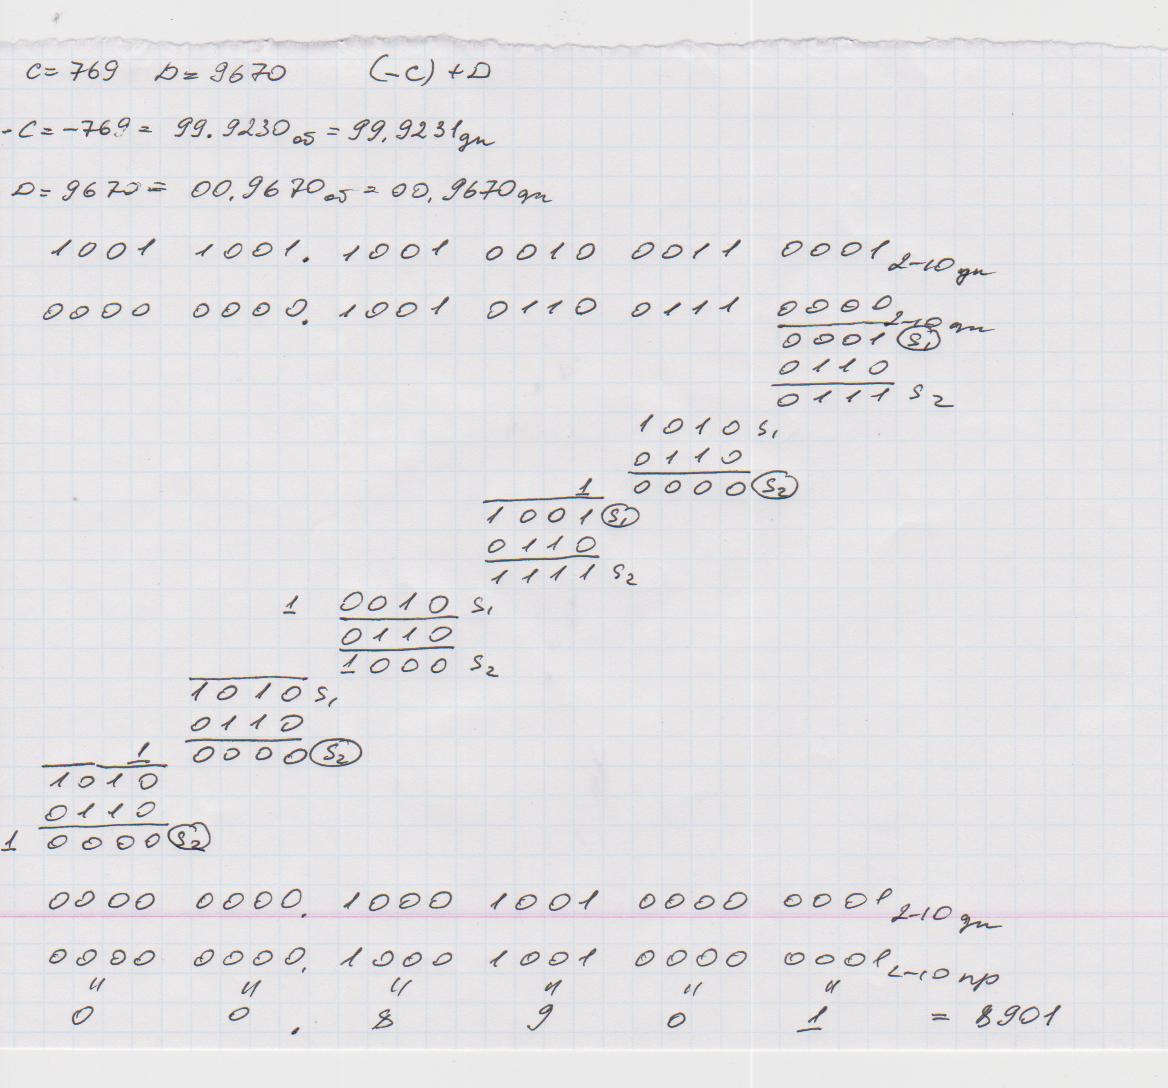 C=769 D=9670 (-C)+D
-C=-769= 99.9230об = 99.9231дп
D=9670= 00.9670об = 00.9670дп
1001 1001. 1001 0010 0011 0001 2-10 дп
0000 0000. 1001 0110 0111 0000 2-10 дп
0001 S1
0110
0111 S2
1010 S1
0110
1 0000 S2
1001 S1
0110
1111 S2
1 0010 S1
0110
1000 S2
1010 S1
0110
1 0000 S2
1010
0110
1 0000 S2
0000 0000. 1000 1001 0000 0001 2-10 дп
0000 0000. 1000 1001 0000 0001 2-10 пр
" " " " " "
0 0 . 8 9 0 1 = 8901